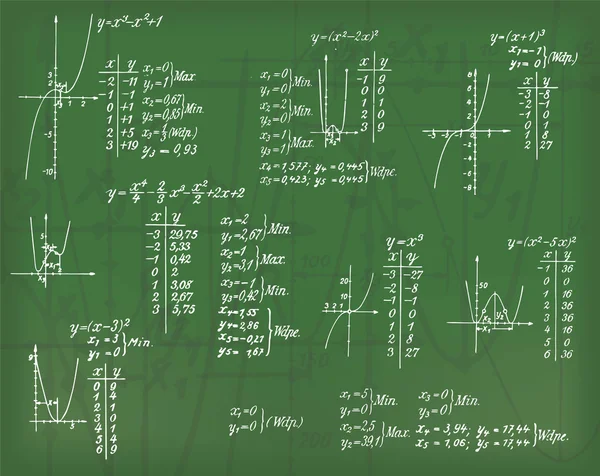 y=x³-x²+1
x y
-2 -11
-1 -1
0 +1
1 +1
2 +5
3 +19
x₁=0
y₁=1
Max
x₂=0,67
y₂=0,85
Min.
x₃=1/3 (Wdp.)
y₃=0,93
3
2
1 2
-5
-10
y=(x²-2x)²
x₁=0
y₁=0
Min.
x₂=2
y₂=0
Min.
x₃=1
y₃=1
Max.
x₄=1,577; y₄=0,445
x₅=0,423; y₅=0,445
Wdpe.
x y
-1 9
0 0
1 1
2 0
3 9
y=(x+1)³
x₁=-1
y₁=0
(Wdp.)
x y
-3 -8
-2 -1
-1 0
0 1
1 8
2 27
8
6
4
2
-3 -2 -1
-2
-4
-6
-8
y=x⁴/4-2/3x³-x²/2+2x+2
x y
-3 29,75
-2 5,33
-1 0,42
0 2
1 3,08
2 2,67
3 5,75
x₁=2
y₁=2,67
Min.
x₂=1
y₂=3,1
Max.
x₃=-1
y₃=0,42
Min.
x₄=1,55
y₄=2,86
x₅=-0,21
y₅=1,67
Wdpe.
5
y=x³
x y
-3 -27
-2 -8
-1 -1
0 0
1 1
2 8
3 27
20
10
3 2 1
y=(x²-5x)²
x y
-1 36
0 0
1 16
2 36
3 36
4 16
5 0
6 36
50
y=(x-3)²
x₁=3
y₁=0
Min.
x y
0 9
1 4
2 1
3 0
4 1
5 4
6 9
x₁=0
y₁=0
(Wdp.)
x₁=5
y₁=0
Min.
x₂=2,5
y₂=39,1
Max.
x₃=0
y₃=0
Min.
x₄=3,94; y₄=17,44
x₅=1,06; y₅=17,44
Wdpe.